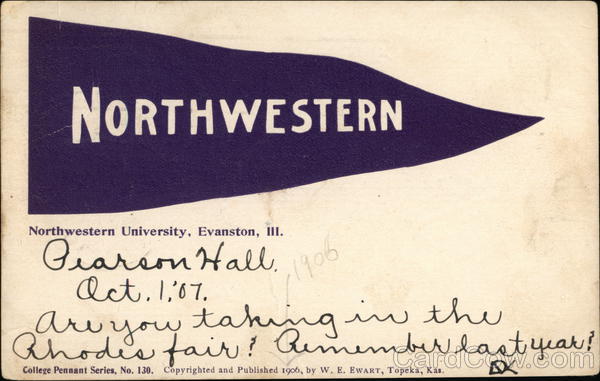 NORTHWESTERN
Northwestern University, Evanston, Ill.
Pearson Hall.
Oct. 1, '07.
1906
Are you taking in the
Rhodes fair? Remember last year?
College Pennant Series, No. 130. Copyrighted and Published 1906, by W. E. EWART, Topeka, Kas.
CardCow.com